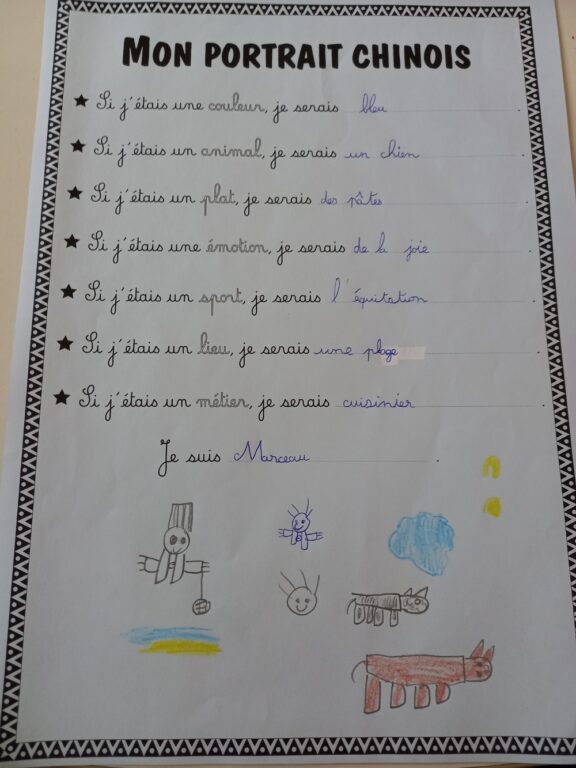 MON PORTRAIT CHINOIS
Si j'étais une couleur, je serais bleu.
Si j'étais un animal, je serais un chien.
Si j'étais un plat, je serais des pâtes.
Si j'étais une émotion, je serais de la joie.
Si j'étais un sport, je serais l'équitation.
Si j'étais un lieu, je serais une plage.
Si j'étais un métier, je serais cuisinier.
Je suis Marceau.